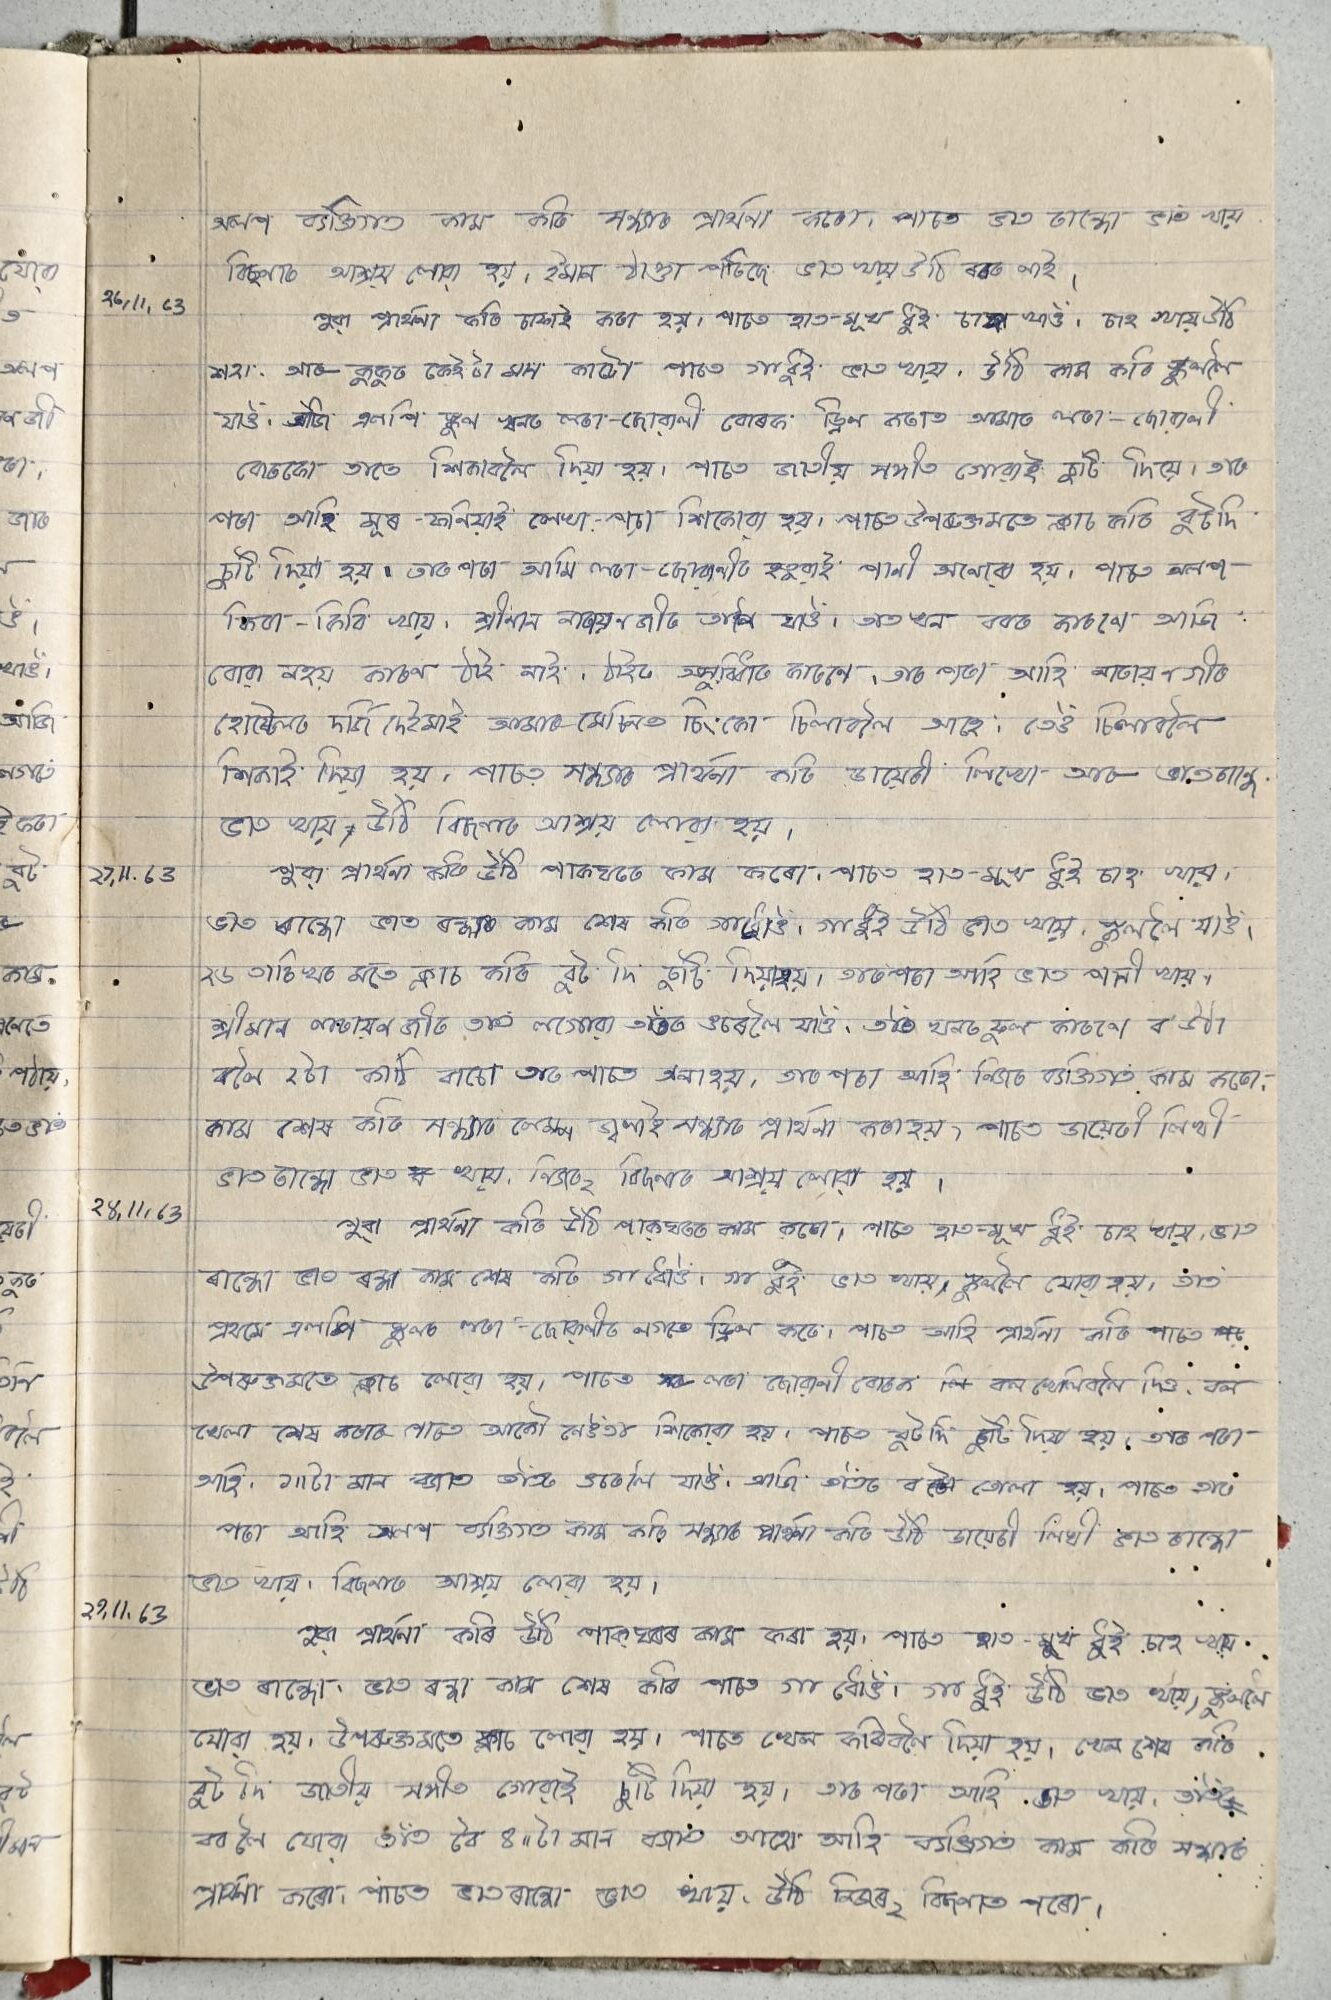 অলপ ব্যক্তিগত কাম কৰি সন্ধ্যাৰ প্ৰাৰ্থনা কৰো, পাচত ভাত ৰান্ধো ভাত খায়
বিচনাত আশ্ৰয় লোৱা হয়, ইমান ঠাণ্ডা পৰিছে ভাত খায় উঠি নাই,
26.11.63
পুৱা প্ৰাৰ্থনা কৰি চাফাই কৰা হয়, পাচত হাত-মূখ ধুই চাহ খাওঁ, চাহ খায় উঠি
আৰু কুকুৰ কেইটা মান কাটো পাচত গা ধুই ভাত খায়, উঠি কাম কৰি স্কুললৈ
যাওঁ, আজি এলপি স্কুল খনত লৰা-ছোৱালী বোৰক ড্ৰিল কৰাত আমাৰ লৰা-ছোৱালী
বোৰকো তাতে শিকাবলৈ দিয়া হয়, পাচত জাতীয় সঙ্গীত গোৱাই চুটি দিয়ে, তাৰ
পৰা আহি লেখা-পঢ়া শিকোৱা হয়, পাচত উপৰুক্তমতে ক্লাচ কৰি বুট দি
চুটি দিয়া হয়, তাৰ পৰা আমি লৰা-ছোৱালীৰ হতুৱাই পানী অনোৱা হয়, পাচত অলপ
কিবা-কিবি খায়, শ্ৰীমান নাৰায়ন জীৰ তালৈ যাওঁ, তাত খন ববৰ কাৰণে আজি
বোৱা নহয় কাৰণ ঠাই নাই, ঠাইৰ অসুবিধাৰ কাৰণে, তাৰ পৰা আহি নাৰায়ণ জীৰ
হোষ্টেলৰ দৰ্জি দেইমাই আমাৰ মেচিনত চিলাবলৈ আহে, তেওঁ চিলাবলৈ
শিকাই দিয়া হয়, পাচত সন্ধ্যাৰ প্ৰাৰ্থনা কৰি ডায়েৰী লিখো আৰু ভাত ৰান্ধো
ভাত খায়, উঠি বিচনাত আশ্ৰয় লোৱা হয়,
27.11.63
পুৱা প্ৰাৰ্থনা কৰি উঠি পাকঘৰত কাম কৰো, পাচত হাত-মূখ ধুই চাহ খায়,
ভাত ৰান্ধো ভাত ৰন্ধাৰ কাম শেষ কৰি গা ধোওঁ, গা ধুই উঠি ভাত খায়, স্কুললৈ যাওঁ,
২৬ তাৰিখৰ মতে ক্লাচ কৰি বুট দি চুটি দিয়া হয়, তাৰ পৰা আহি ভাত পানী খায়,
শ্ৰীমান নাৰায়ন জীৰ তাত লগোৱা তাঁতৰ ওচৰলৈ যাওঁ, খনত ফুল কাৰণে ব উঠা
বলৈ ২টা কাঠি বাচো তাৰ পাচত অনা হয়, তাৰ পৰা আহি নিজৰ ব্যক্তিগত কাম কৰো,
কাম শেষ কৰি সন্ধ্যাৰ লেমন জ্বলাই সন্ধ্যাৰ প্ৰাৰ্থনা কৰা হয়, পাচত ডায়েৰী লিখী
ভাত ৰান্ধো ভাত খায়, নিজৰ বিচনাত আশ্ৰয় লোৱা হয়,
28.11.63
পুৱা প্ৰাৰ্থনা কৰি উঠি পাকঘৰত কাম কৰো, পাচত হাত-মূখ ধুই চাহ খায়, ভাত
ৰান্ধো ভাত ৰন্ধা কাম শেষ কৰি গা ধোওঁ, গা ধুই ভাত খায়, স্কুললৈ যোৱা হয়, তাত
প্ৰথমে এলপি স্কুলৰ লৰা-ছোৱালীৰ লগতে ড্ৰিল কৰে, পাচত আহি প্ৰাৰ্থনা কৰি পাচত
উপৰুক্তমতে ক্লাচ লোৱা হয়, পাচত লৰা ছোৱালী বোৰক বল খেলিবলৈ দিও, বল
খেলা শেষ কৰাৰ পাচত আকৌ শিকোৱা হয়, পাচত বুট দি চুটি দিয়া হয়, তাৰ পৰা
আহি, ১৷৷টা মান বজাত তাঁতৰ ওচৰলৈ যাওঁ, আজি তাঁতৰ ব তোলা হয়, পাচত তাৰ
পৰা আহি অলপ ব্যক্তিগত কাম কৰি সন্ধ্যাৰ প্ৰাৰ্থনা কৰি উঠি ডায়েৰী লিখী ভাত ৰান্ধো
ভাত খায়, বিচনাত আশ্ৰয় লোৱা হয়,
29.11.63
পুৱা প্ৰাৰ্থনা কৰি উঠি পাকঘৰৰ কাম কৰা হয়, পাচত হাত-মুখ ধুই চাহ খায়,
ভাত ৰান্ধো, ভাত ৰন্ধা কাম শেষ কৰি পাচত গা ধোওঁ, গা ধুই উঠি ভাত খায়, স্কুললৈ
যোৱা হয়, উপৰুক্তমতে ক্লাচ লোৱা হয়, পাচত খেল কৰিবলৈ দিয়া হয়, খেল শেষ কৰি
বুট দি জাতীয় সঙ্গীত গোৱাই চুটি দিয়া হয়, তাৰ পৰা আহি ভাত খায়, তাঁতৰ
বব লৈ যোৱা তাঁত বৈ ৪৷৷টা মান বজাত আহো আহি ব্যক্তিগত কাম কৰি সন্ধ্যাৰ
প্ৰাৰ্থনা কৰো, পাচত ভাত ৰান্ধো ভাত খায়, উঠি নিজৰ বিচনাত পৰো,